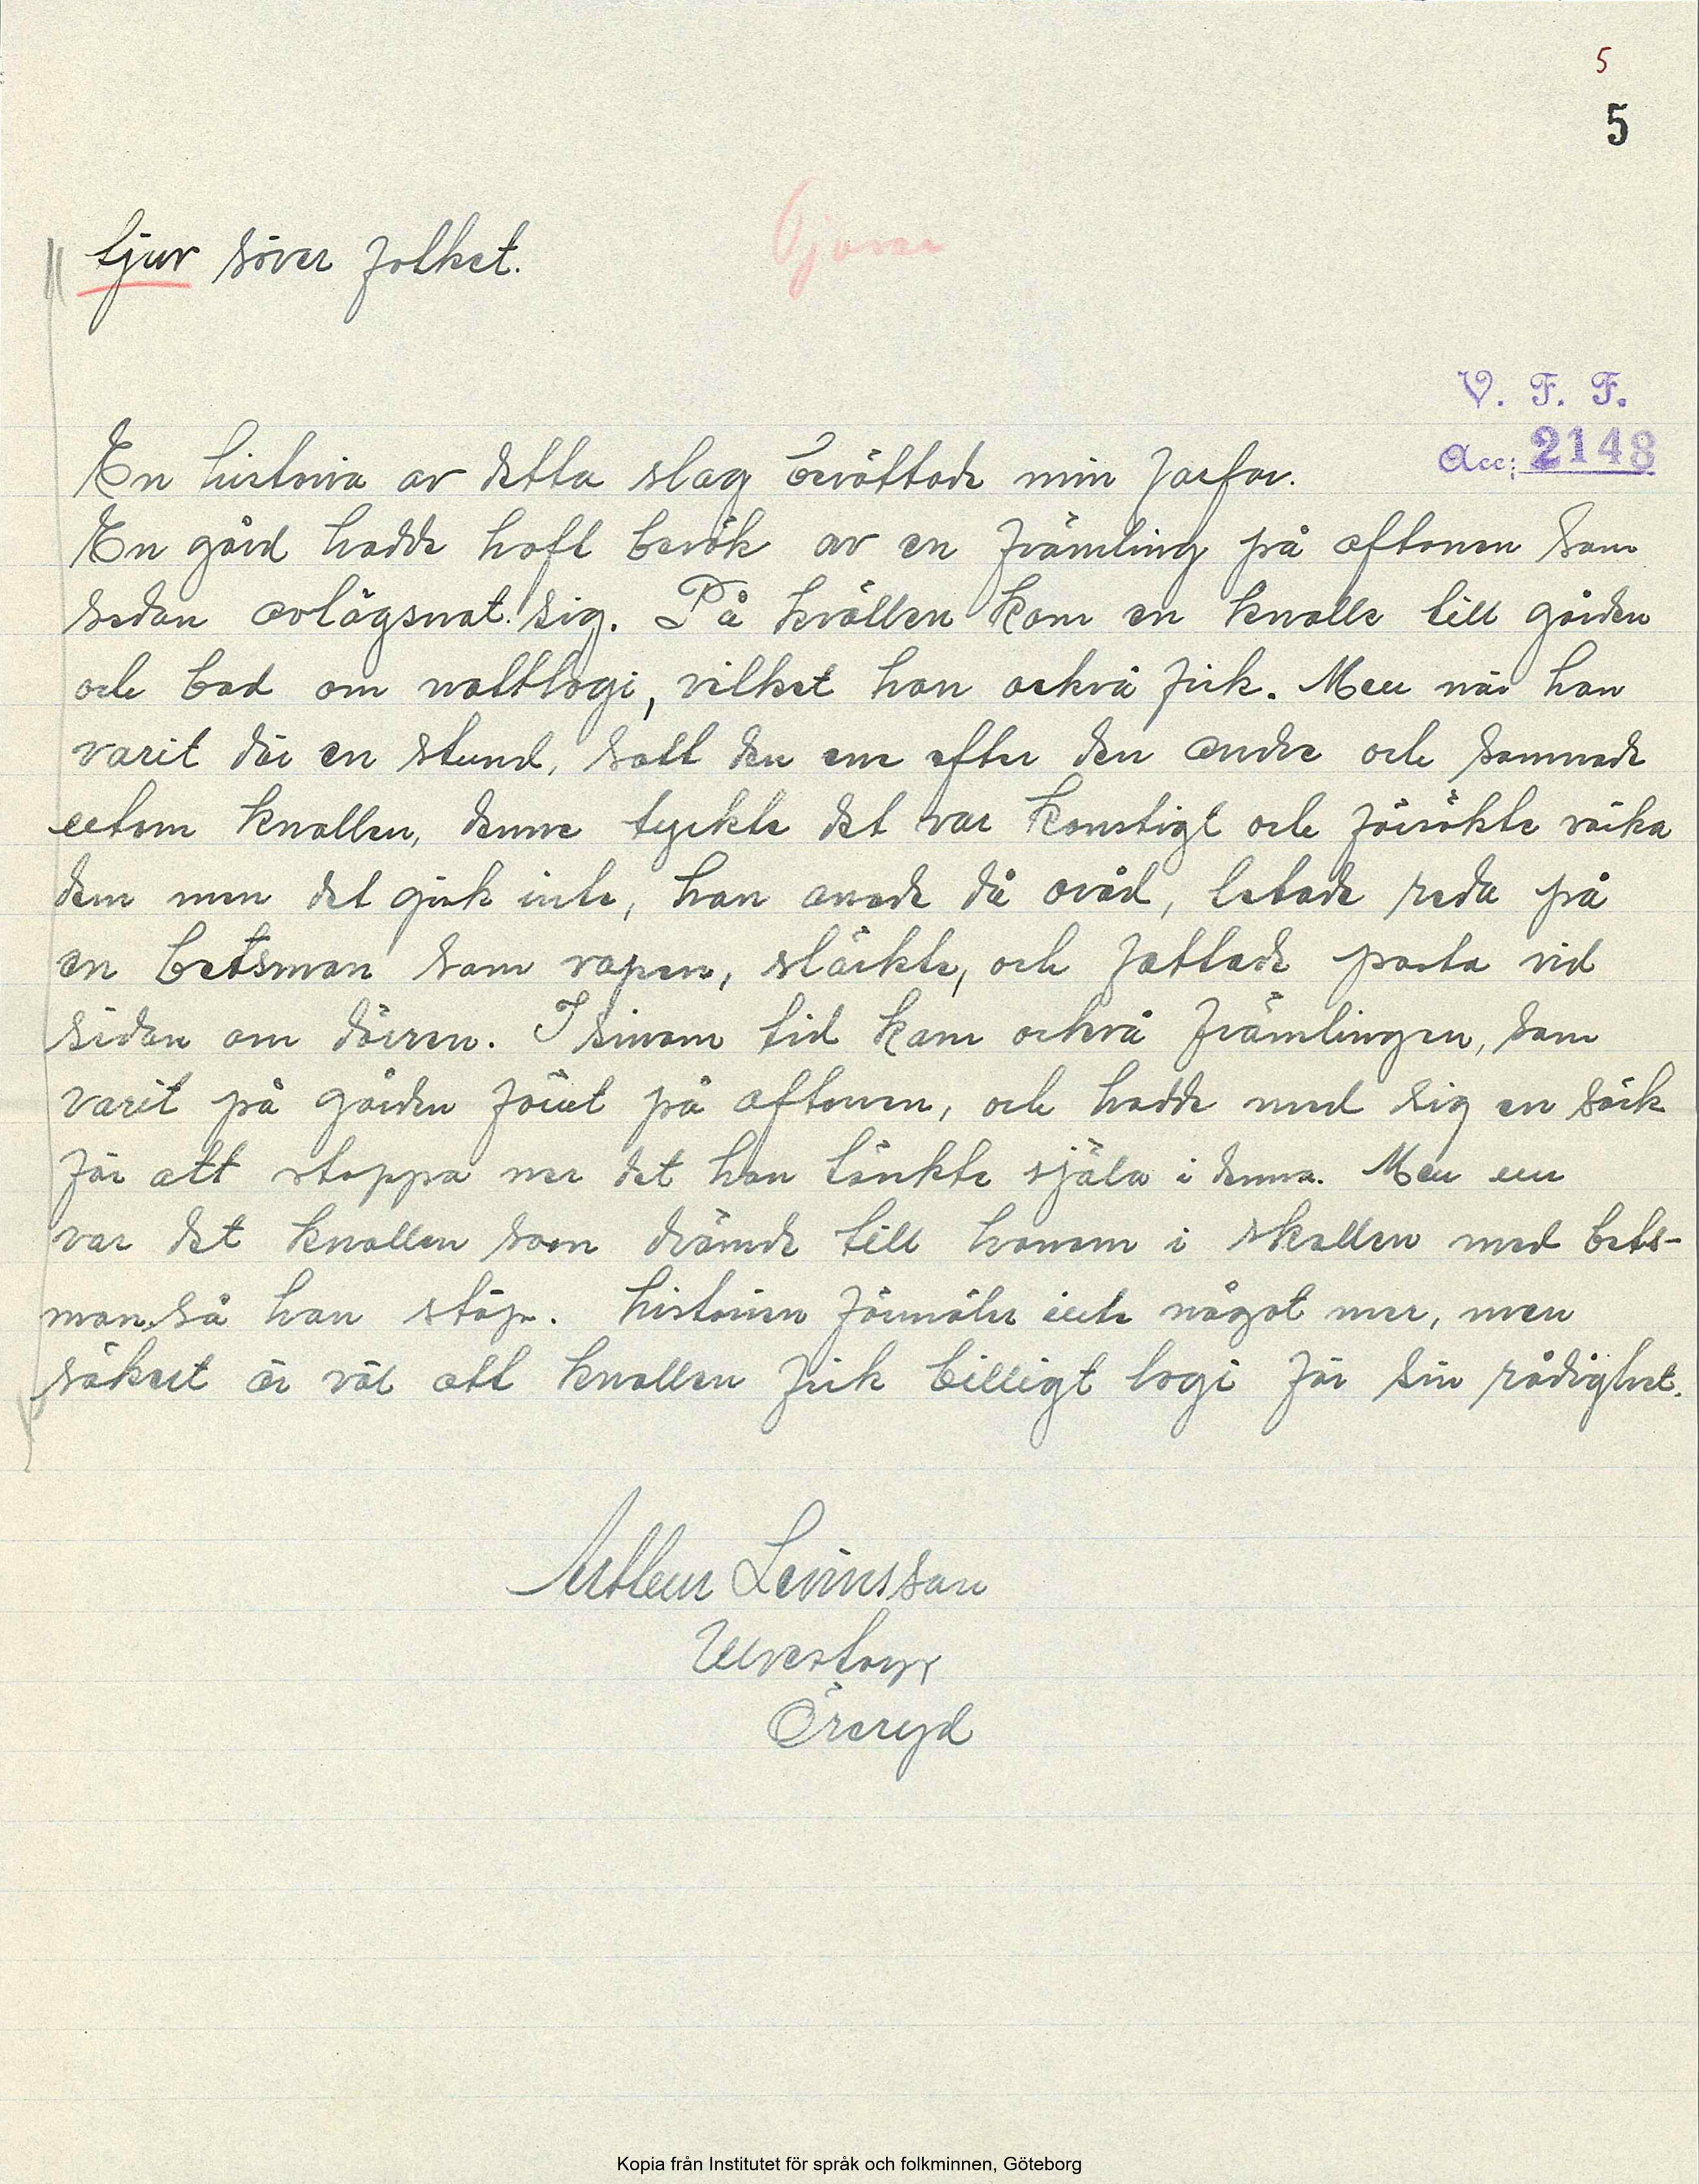 5
5
tjuv söver folket.
Tjuvar
V. F. F.
Acc: 2148
En historia av detta slag berättade min farfar.
En gård hadde haft besök av en främling på aftonen som
sedan avlägsnat sig. På kvällen kom en knalle till gården
och bad om nattlogi, vilket han också fick. Men när han
varit där en stund, satt den ene efter den andre och somnade
utom knallen, denne tyckte det var konstigt och försökte väcka
dem men det gick inte, han anade då oråd, letade reda på
en betsman som vapen, släckte, och fattade posta vid
sidan om dörren. I sinom tid kom också främlingen, som
varit på gården förut på aftonen, och hadde med sig en säck
för att stoppa ner det han tänkte själa i denna. Men nu
var det knallen som drämde till honom i skallen med bets-
man så han stöp. Historien förmäler inte något mer, men
säkert är väl att knallen fick billigt logi för sin rådighet.
Arthur Levinsson
Ulvestorp
Öreryd
Kopia från Institutet för språk och folkminnen, Göteborg